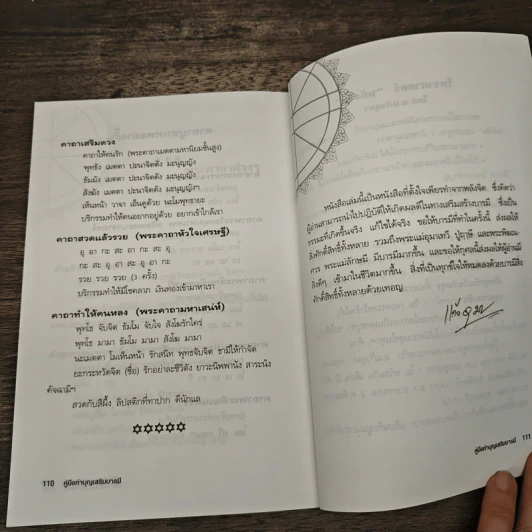 คาถาเสริมดวง
คาถาให้คนรัก (พระคาถาเมตตามหานิยมชั้นสูง)
พุทธัง เมตตา ปะนาจิตตัง มะนุญญัง
ธัมมัง เมตตา ปะนาจิตตัง มะนุญญัง
สังฆัง เมตตา ปะนาจิตตัง มะนุญญังฯ
เห็นหน้า วาจา เอ็นดูด้วย นะโมพุทธายะ
บริกรรมทำให้คนอยากอยู่ด้วย อยากเข้าใกล้เรา
คาถาสวดแล้วรวย (พระคาถาหัวใจเศรษฐี)
อุ อา กะ สะ อา กะ สะ อุ
กะ สะ อุ อา สะ อุ อา กะ
รวย รวย รวย (3 ครั้ง)
บริกรรมทำให้มีโชคลาภ เงินทองเข้ามาหาเรา
คาถาทำให้คนหลง (พระคาถามหาเสน่ห์)
พุทโธ จับจิต ธัมโม จับใจ สังโฆรักใคร่
พุทโธ มามา ธัมโม มามา สังโฆ มามา
นะเมตตา โมเห็นหน้า รักสนิท พุทธจับจิต ธามิให้กำจัด
ยะกระหวัดจิต (ชื่อ) รักอย่าละชีวิตัง ยาวะนิพพานัง สาระนัง
คัจฉามิฯ
สวดกับสีผึ้ง ลิปสติกที่ทาปาก ดีนักแล
110 คู่มือทำบุญเสริมบารมี
หนังสือเล่มนี้เป็นหนังสือที่ตั้งใจเพียรทำจากพลังจิต ซึ่งคิดว่า
ผู้อ่านสามารถนำไปปฏิบัติให้เกิดผลดีในทางเสริมสร้างบารมี ซึ่งเป็น
ธรรมะที่เกิดขึ้นจริง แก้ไขได้จริง ขอให้บารมีที่ทำในครั้งนี้ ส่งผลให้
สิ่งศักดิ์สิทธิ์ทั้งหลาย รวมถึงพระแม่อุมาเทวี ปู่ฤาษี และพระพิฆเนศ
ควร พระแม่ลักษมี มีบารมีมากขึ้น และขอให้กุศลนี้ส่งผลให้ผู้อ่านมี
สิ่งดีๆ เข้ามาในชีวิตมากขึ้น สิ่งที่เป็นทุกข์ใจให้หมดลงด้วยบารมีสิ่ง
ศักดิ์สิทธิ์ทั้งหลายด้วยเทอญ
คู่มือทำบุญเสริมบารมี 111